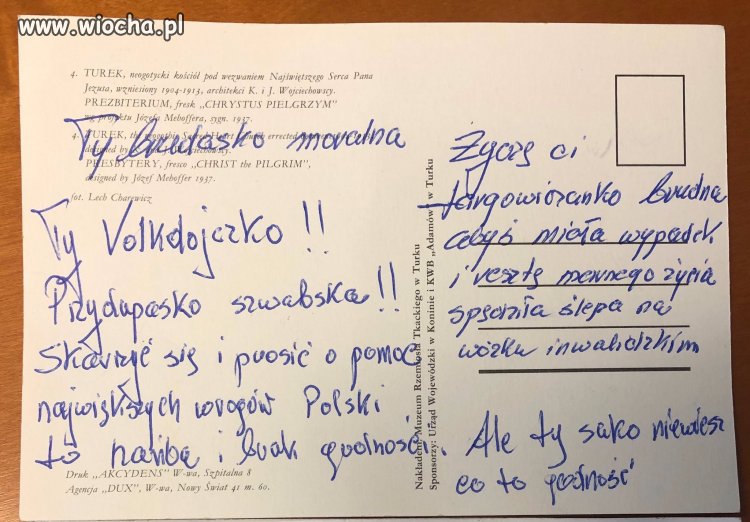 www.wiocha.pl
4. TUREK, neogotycki kościół pod wezwaniem Najświętszego Serca Pana
Jezusa, wzniesiony 1904-1913, architekci K. i J. Wojciechowscy.
PREZBITERIUM, fresk „CHRYSTUS PIELGRZYM"
wg projektu Józefa Mehoffera, sygn. 1937.
4. TUREK, the neogothic Sacred Heart Church errected
designed by Wojciechowscy.
PRESBYTERY, fresco „CHRIST the PILGRIM",
designed by Józef Mehoffer 1937.
fot. Lech Charewicz
Ty brudasko moralna
Ty Volkdojczko !!
Przydupasko szwabska!!
Skarżyć się i prosić o pomoc
największych wrogów Polski
to hańba i brak godności
Druk „AKCYDENS" W-wa, Szpitalna 8
Agencja „DUX", W-wa, Nowy Świat 41 m. 60.
Nakładem Muzeum Rzemiosła Tkackiego w Turku
Sponsorzy: Urząd Wojewódzki w Koninie i KWB „Adamów" w Turku
Życzę ci
targowiczanko brudna
abyś miała wypadek
i resztę marnego życia
spędziła ślepa na
wózku inwalidzkim
Ale ty sako niewiesz
co to godność